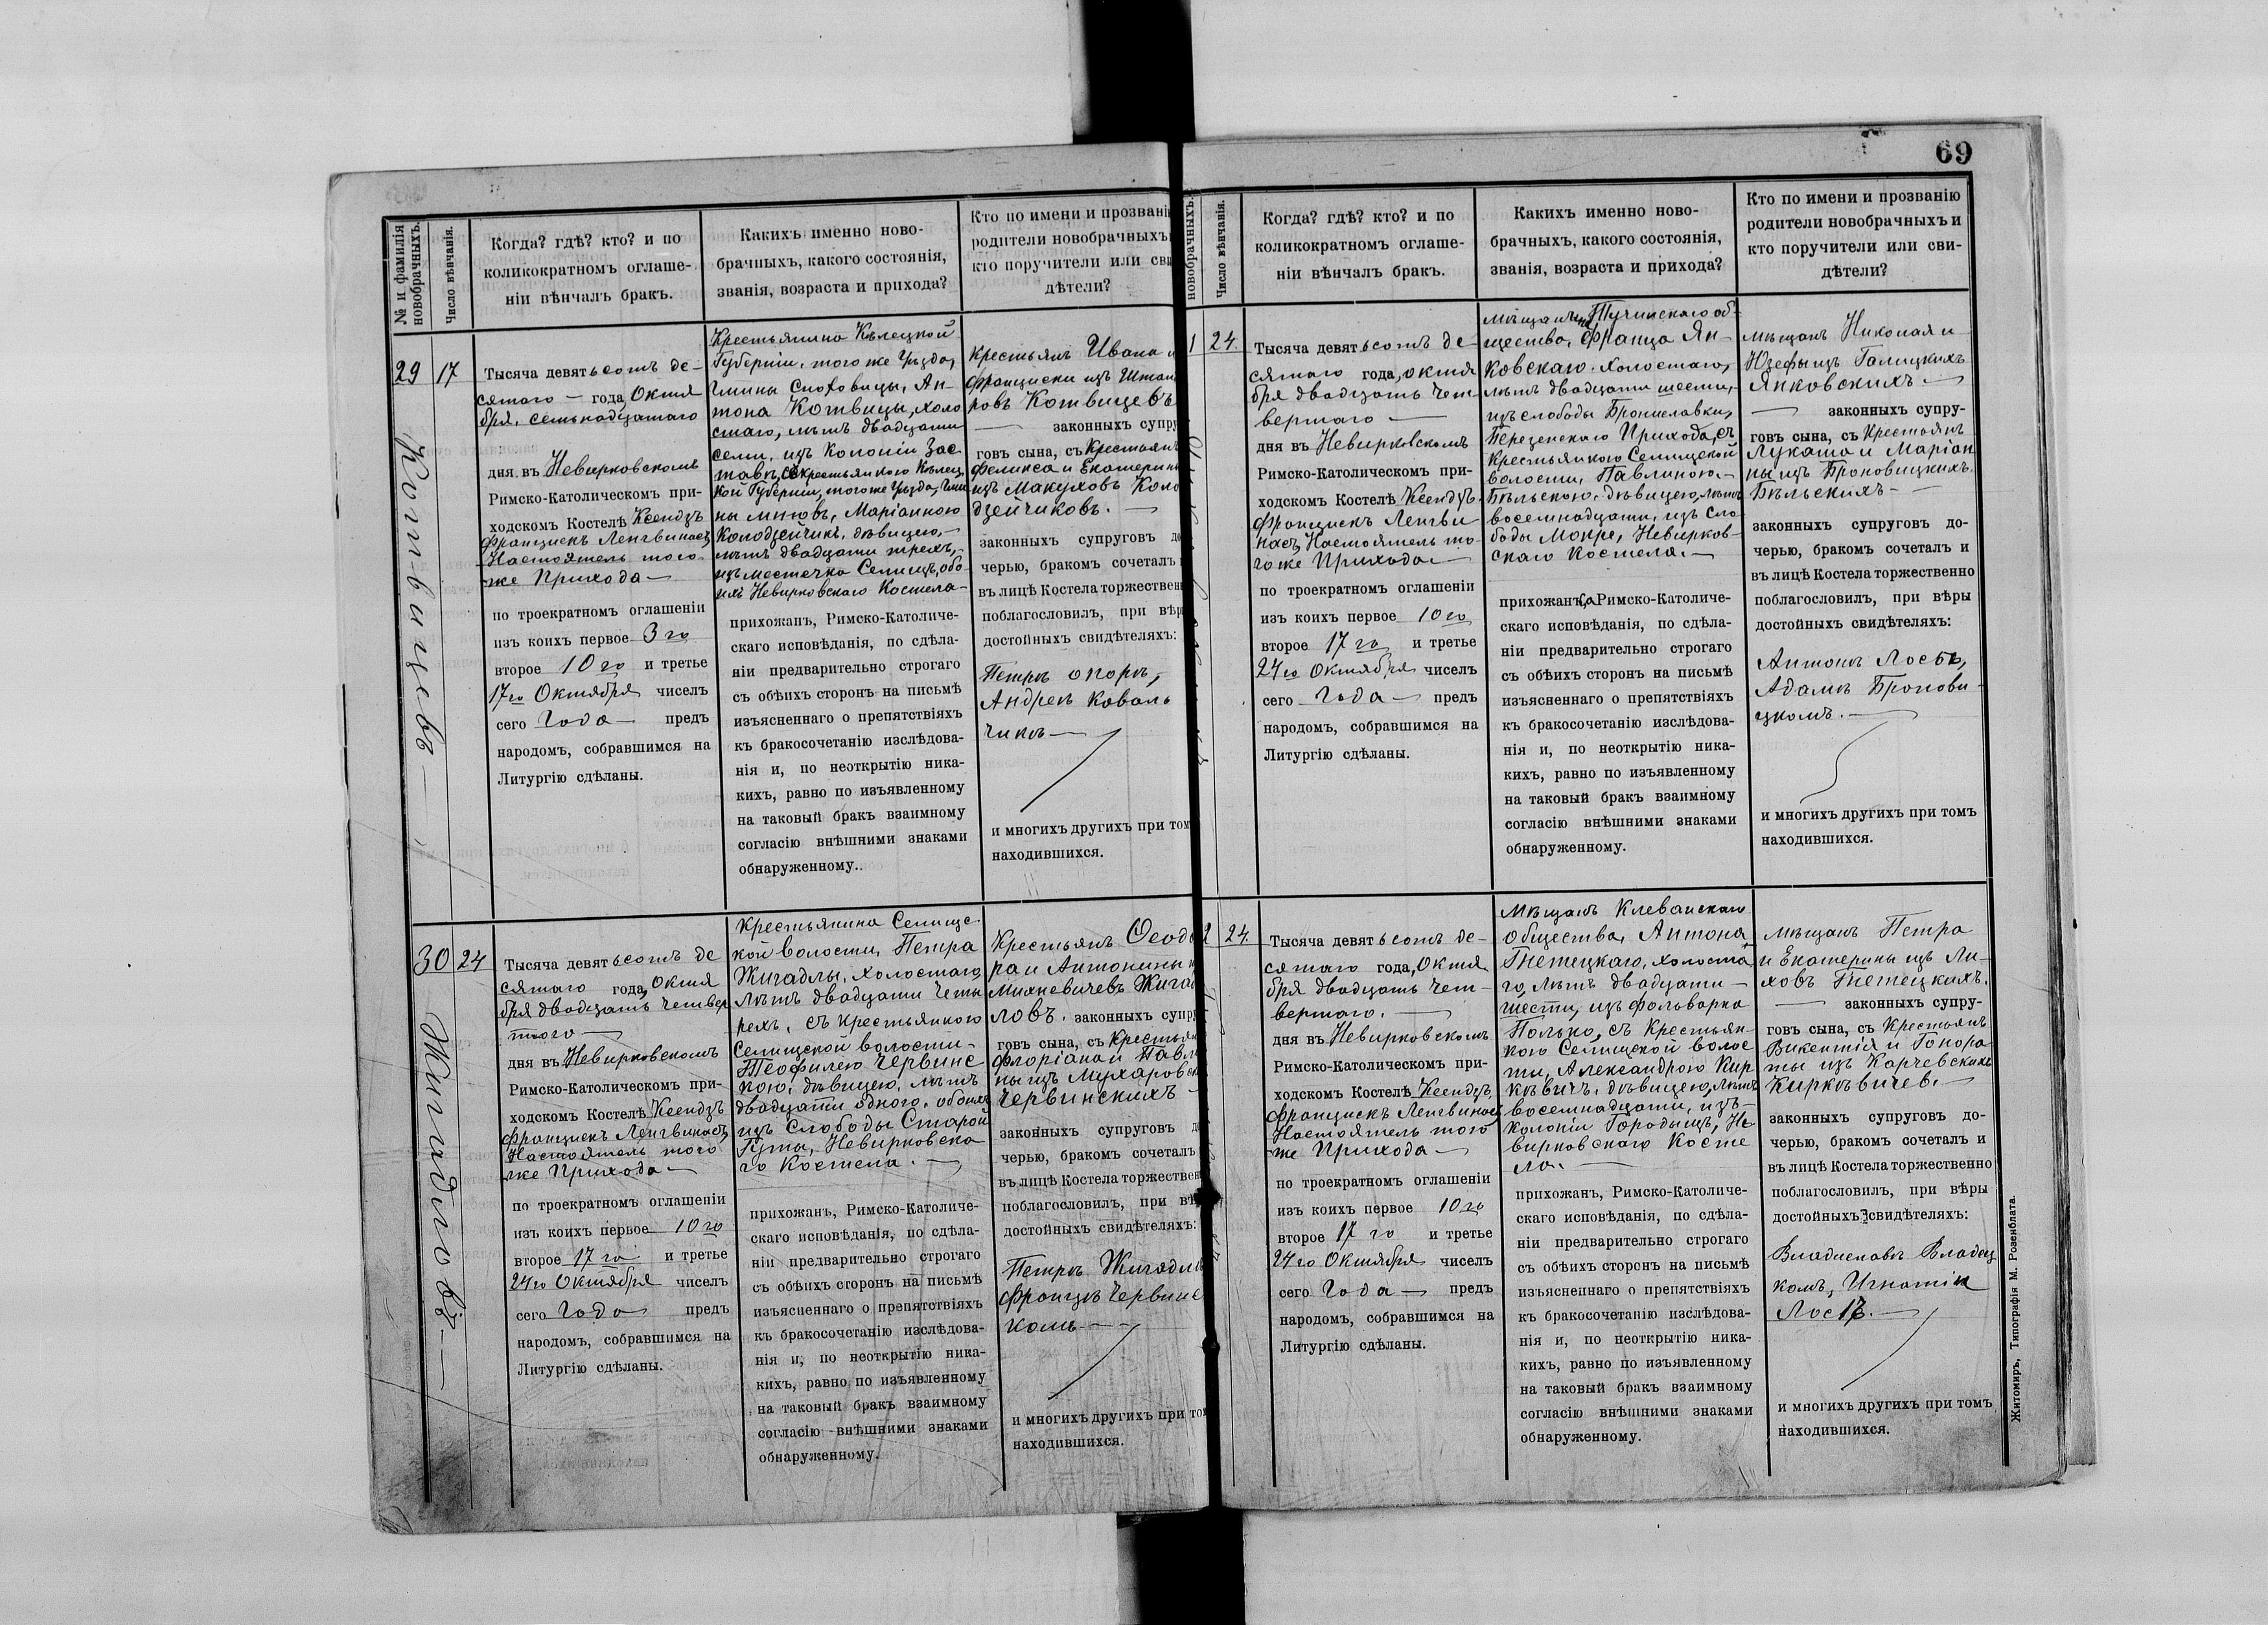 69
№ и фамилія
новобрачныхъ.
Число вѣнчанія.
Когда? гдѣ? кто? и по
коликократномъ оглаше-
ніи вѣнчалъ бракъ.
Какихъ именно ново-
брачныхъ, какого состоянія,
званія, возраста и прихода?
Кто по имени и прозванію
родители новобрачныхъ
кто поручители или сви
дѣтели?
29
17
Котвицевъ
Тысяча девятьсотъ де-
сятаго — года, Октя
бря, семьнадцатаго
дня въ Невирковскомъ
Римско-Католическомъ при-
ходскомъ Костелѣ Ксендзъ
Францискъ Ленгвинасъ,
Настоятель того-
же Прихода —
по троекратномъ оглашеніи
изъ коихъ первое 3го
второе 10го и третье
17го Октября чиселъ
сего Года — предъ
народомъ, собравшимся на
Литургію сдѣланы.
Крестьянина Кѣлецкой
Губерніи, того же Уѣзда,
Гмины Сноховицы, Ан-
тона Котвицы, холо
стаго, лѣтъ двадцати
семи, изъ Колоніи Зас
тавъ, съ крестьянкою Кѣлец
кой Губерніи, того же Уѣзда, Гми
ны Мнювъ, Маріанною
Колодзейчикъ, дѣвицею, —
лѣтъ двадцати трехъ, —
изъ местечка Селищъ, обо
ихъ Невирковскаго Костела —
прихожанъ, Римско-Католиче-
скаго исповѣданія, по сдѣла-
ніи предварительно строгаго
съ обѣихъ сторонъ на письмѣ
изъясненнаго о препятствіяхъ
къ бракосочетанію изслѣдова-
нія и, по неоткрытію ника-
кихъ, равно по изъявленному
на таковый бракъ взаимному
согласію внѣшними знаками
обнаруженному.
Крестьянъ Ивана и
Франциски изъ
ровъ Котвицевъ
— законныхъ супру
говъ сына, съ Крестьянъ
Феликса и Екатерины
изъ Макуховъ Коло
дзейчиковъ. —
законныхъ супруговъ до
черью, бракомъ сочеталъ
въ лицѣ Костела торжественно
поблагословилъ, при вѣры
достойныхъ свидѣтеляхъ:
Петрѣ Опорѣ,
Андреѣ Коваль
чикѣ —
и многихъ другихъ при томъ
находившихся.
30
24
Жигадловъ —
Тысяча девятьсотъ де
сятаго года, Октя
бря двадцать четвер
таго —
дня въ Невирковскомъ
Римско-Католическомъ при-
ходскомъ Костелѣ Ксендзъ
Францискъ Ленгвинасъ,
Настоятель того
же Прихода —
по троекратномъ оглашеніи
изъ коихъ первое 10го
второе 17го и третье
24го Октября чиселъ
сего Года предъ
народомъ, собравшимся на
Литургію сдѣланы.
Крестьянина Селищс-
кой волости, Петра
Жигадлы, холостаго
лѣтъ двадцати четы
рехъ, съ крестьянкою
Селищской волости —
Теофилею Червинс
кою, дѣвицею, лѣтъ
двадцати одного, обоихъ
изъ Слободы Старой
Гута, Невирковска
го Костела. —
прихожанъ, Римско-Католиче-
скаго исповѣданія, по сдѣла-
ніи предварительно строгаго
съ обѣихъ сторонъ на письмѣ
изъясненнаго о препятствіяхъ
къ бракосочетанію изслѣдова-
нія и, по неоткрытію ника-
кихъ, равно по изъявленному
на таковый бракъ взаимному
согласію внѣшними знаками
обнаруженному.
Крестьянъ Ѳеодо
ра и Антонины
Михневичевъ Жигад
ловъ. законныхъ супру
говъ сына, съ Крестьянъ
Флоріана и Павли
ны изъ Мухаровск
Червинскихъ —
законныхъ супруговъ до
черью, бракомъ сочеталъ
въ лицѣ Костела торжествен
поблагословилъ, при вѣ
достойныхъ свидѣтеляхъ:
Петрѣ Жигадлѣ
Францѣ Червинс
комъ —
и многихъ другихъ при том
находившихся.
новобрачныхъ.
Число вѣнчанія.
Когда? гдѣ? кто? и по
коликократномъ оглаше-
ніи вѣнчалъ бракъ.
Какихъ именно ново-
брачныхъ, какого состоянія,
званія, возраста и прихода?
Кто по имени и прозванію
родители новобрачныхъ и
кто поручители или сви-
дѣтели?
1
24.
Тысяча девятьсотъ де-
сятаго года, октя
бря двадцать чет-
вертаго —
дня въ Невирковскомъ
Римско-Католическомъ при-
ходскомъ Костелѣ Ксендзъ
Францискъ Ленгви
насъ, Настоятель то-
гоже Прихода —
по троекратномъ оглашеніи
изъ коихъ первое 10го
второе 17го и третье
24го Октября чиселъ
сего Года — предъ
народомъ, собравшимся на
Литургію сдѣланы.
Мѣщанина Тучинскаго об-
щества, Франца Ян-
ковскаго, холостаго,
лѣтъ двадцати шести,
изъ слободы Брониславки,
Березенскаго Прихода, съ
Крестьянкою Селищской
волости, Павлиною —
Бѣльскою, дѣвицею, лѣтъ
восемнадцати, изъ Сло
боды Мокре, Невирков-
скаго Костела. —
прихожанъ, Римско-Католиче-
скаго исповѣданія, по сдѣла-
ніи предварительно строгаго
съ обѣихъ сторонъ на письмѣ
изъясненнаго о препятствіяхъ
къ бракосочетанію изслѣдова-
нія и, по неоткрытію ника-
кихъ, равно по изъявленному
на таковый бракъ взаимному
согласію внѣшними знаками
обнаруженному.
Мѣщанъ Николая и
Юзефы изъ Галицкихъ
Янковскихъ. —
— законныхъ супру-
говъ сына, съ Крестьянъ
Лукаша и Маріан
ны изъ Броновицкихъ
Бѣльскихъ —
законныхъ супруговъ до-
черью, бракомъ сочеталъ и
въ лицѣ Костела торжественно
поблагословилъ, при вѣры
достойныхъ свидѣтеляхъ:
Антонѣ Лосѣ,
Адамѣ Бронови-
цкомъ. —
и многихъ другихъ при томъ
находившихся.
2
24.
Тысяча девятьсотъ де-
сятаго года, Октя
бря двадцать чет-
вертаго. —
дня въ Невирковскомъ
Римско-Католическомъ при-
ходскомъ Костелѣ Ксендзъ,
Францискъ Ленгвинасъ
Настоятель того
же Прихода —
по троекратномъ оглашеніи
изъ коихъ первое 10го
второе 17го и третье
24го Октября чиселъ
сего Года — предъ
народомъ, собравшимся на
Литургію сдѣланы.
Мѣщанъ Клеванскаго
Общества, Антона
Гнетецкаго, холоста
го, лѣтъ двадцати —
шести, изъ фольварка
Полько, съ Крестьян-
кою Селищской волос
ти, Александрою Кир
кѣвичъ, дѣвицею, лѣтъ
восемнадцати, изъ —
Колоніи Городищъ, Не
вирковскаго Косте
ла. —
прихожанъ, Римско-Католиче-
скаго исповѣданія, по сдѣла-
ніи предварительно строгаго
съ обѣихъ сторонъ на письмѣ
изъясненнаго о препятствіяхъ
къ бракосочетанію изслѣдова-
нія и, по неоткрытію ника-
кихъ, равно по изъявленному
на таковый бракъ взаимному
согласію внѣшними знаками
обнаруженному.
Мѣщанъ Петра
и Екатерины изъ Ли-
ховъ Гнетецкихъ.
— законныхъ супру-
говъ сына, съ Крестьянъ
Викентія и Гонора
ты изъ Карчевскихъ
Киркѣвичев. —
законныхъ супруговъ до-
черью, бракомъ сочеталъ и
въ лицѣ Костела торжественно
поблагословилъ, при вѣры
достойныхъ свидѣтеляхъ:
Владиславѣ Владец
комъ, Игнатіи
Лосѣ. —
и многихъ другихъ при томъ
находившихся.
Житомиръ, Типографія М. Розенблата.